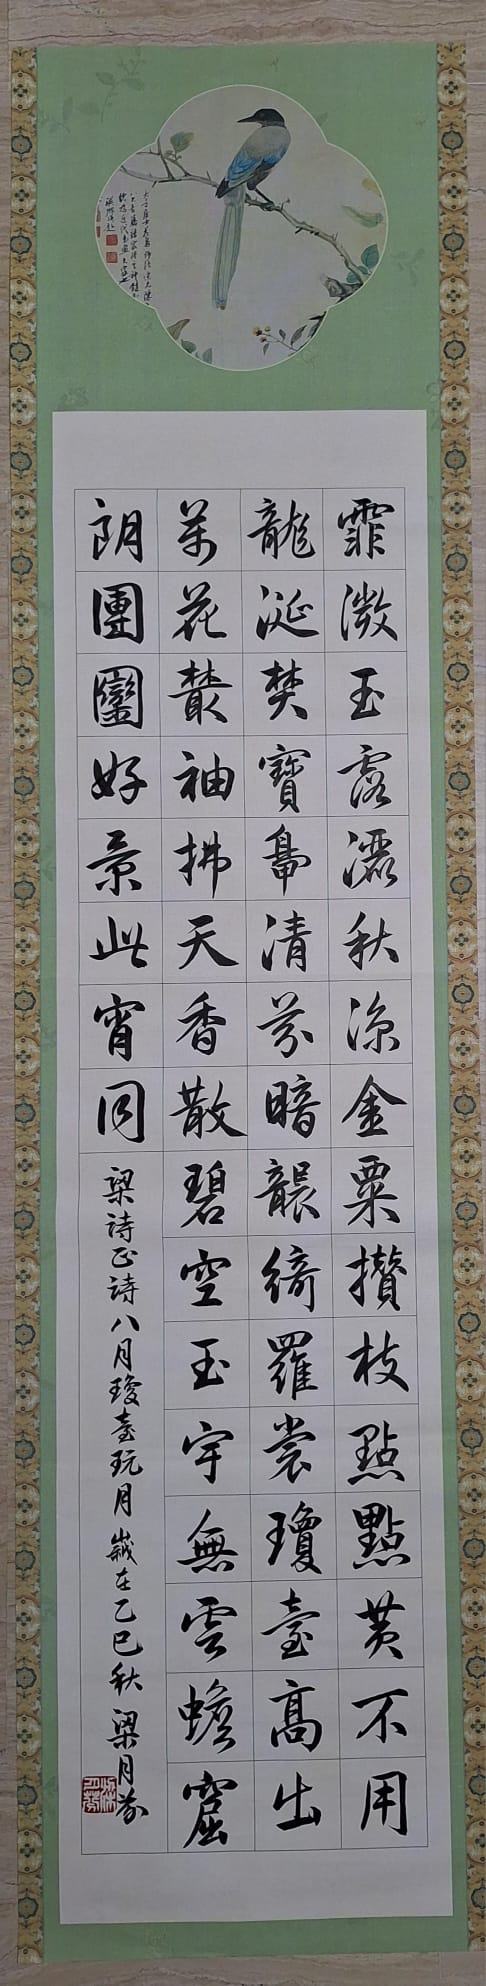 霏微玉露灑秋涼金粟攢枝點點黃不用
龍涎焚寶鼎清芬暗襲綺羅裳瓊臺高出
萬花叢袖拂天香散碧空玉宇無雲蟾窟
朗團圞好景此宵同
梁詩正詩八月瓊臺玩月 歲在乙巳秋 梁月芬